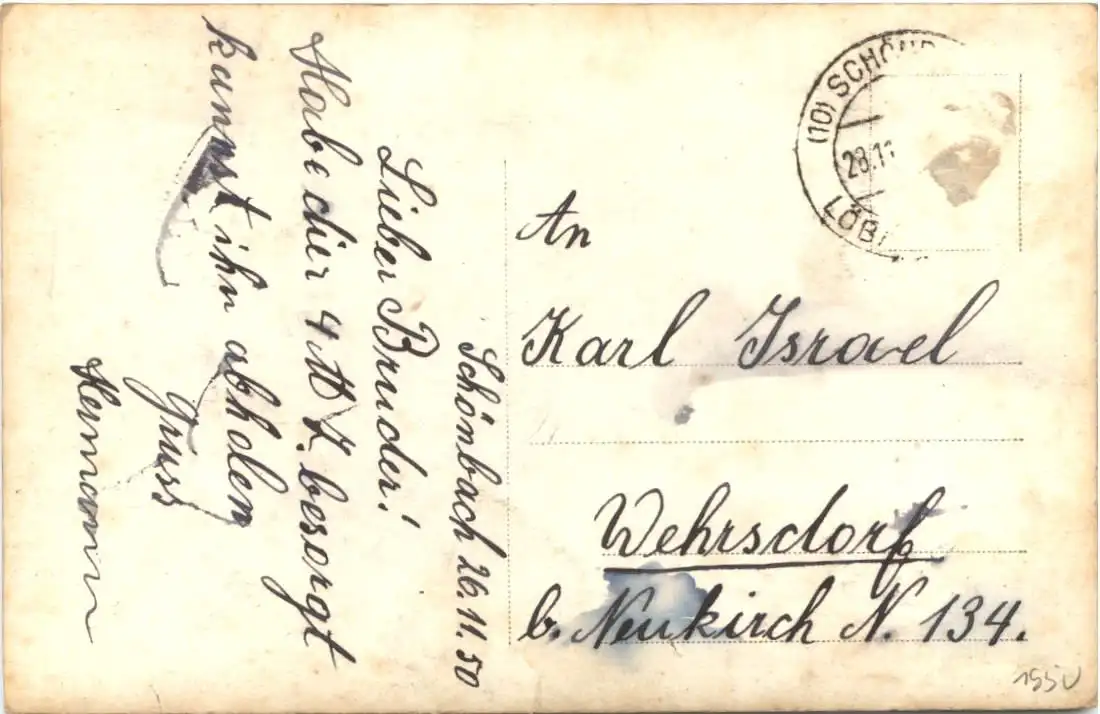 Schönbach 26.11.50
Lieber Bruder!
Habe dier 4 Z. besorgt
kannst ihn abholen
Gruss
Hermann
(10) SCHÖN
28.11
LÖB
An
Karl Israel
Wehrsdorf
b. Neukirch N. 134.
1950